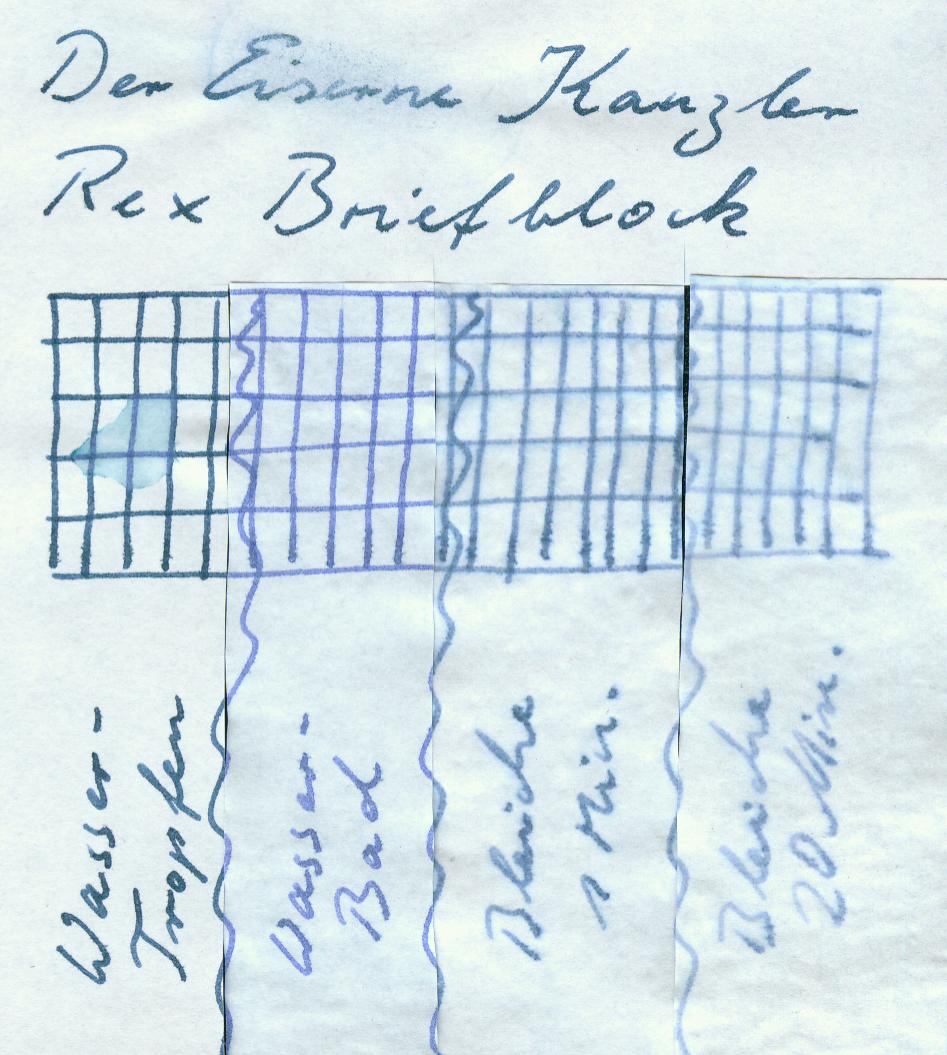 Der Eiserne Kanzler
Rex Briefblock
Wasser-
Tropfen
Wasser-
Bad
Bleiche
1 Min.
Bleiche
20 Min.